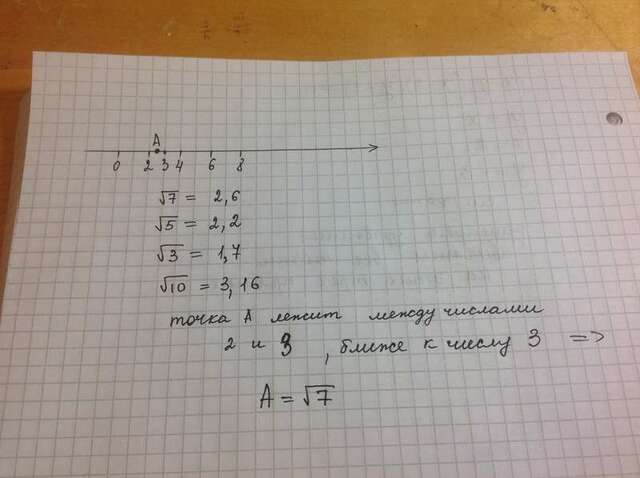 A
0 2 3 4 6 8
√7 = 2,6
√5 = 2,2
√3 = 1,7
√10 = 3,16
точка А лежит между числами
2 и 3 , ближе к числу 3 =>
A = √7